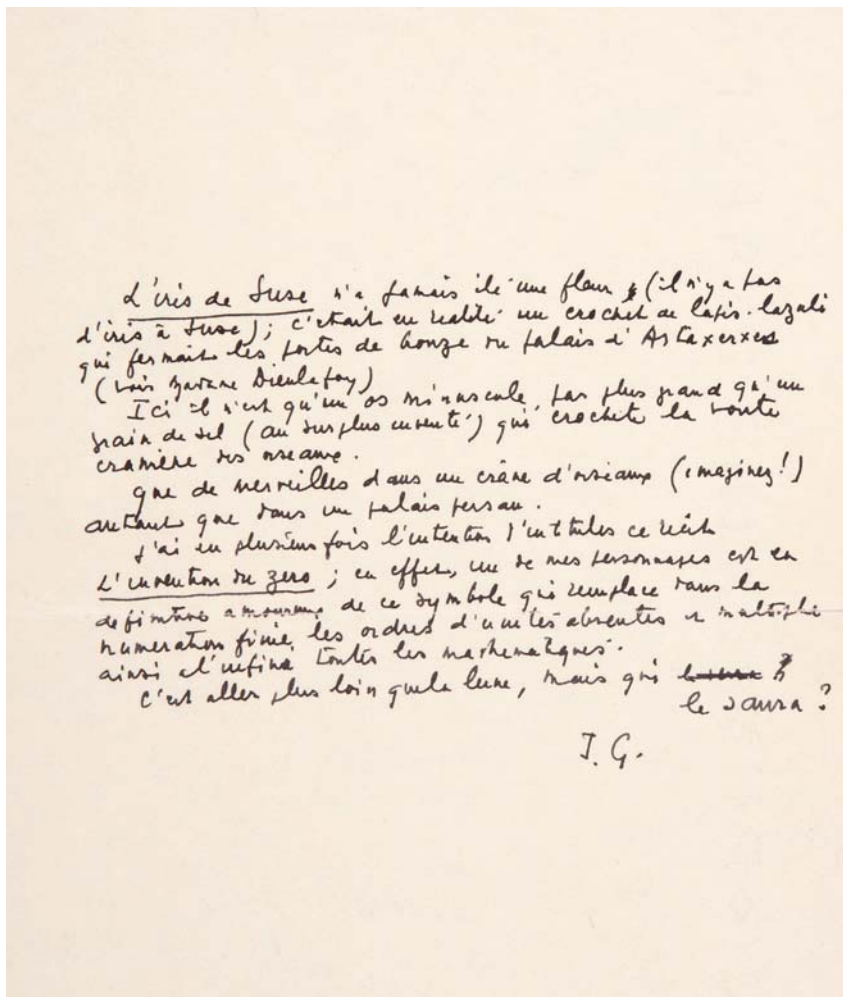 L'iris de Suse n'a jamais été une fleur (il n'y a pas
d'iris à Suse); c'était en réalité un crochet de lapis-lazuli
qui fermait les portes de bronze du palais d'Artaxerxes
(voir Madame Dieulafoy)
Ici il n'est qu'un os minuscule, pas plus grand qu'un
grain de sel (au surplus inventé) qui crochète la voute
cranière des oiseaux.
Que de merveilles dans un crâne d'oiseaux (imaginez!)
autant que dans un palais persan.
J'ai eu plusieurs fois l'intention d'intituler ce récit
L'invention du zero; en effet, un de mes personnages est en
definitive amoureux de ce symbole qui remplace dans la
numeration finie, les ordres d'unités absentes et multiplie
ainsi à l'infini toutes les mathematiques.
C'est aller plus loin que la lune, mais qui
le saura?
J. G.